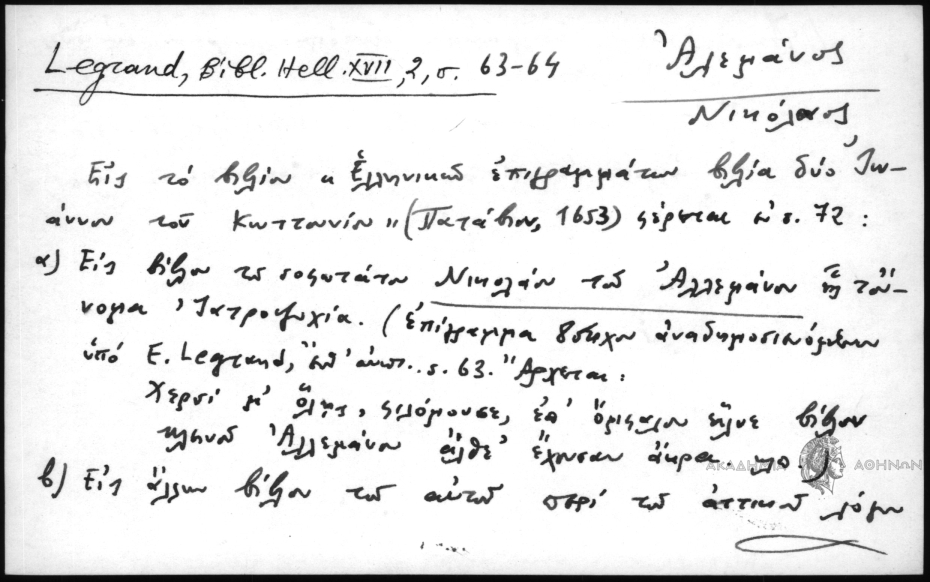 Legrand, Bibl. Hell. XVII, 2, σ. 63-64
Ἀλεμάνος
Νικόλαος
Εἰς τό βιβλίον « Ἑλληνικῶν ἐπιγραμμάτων βιβλία δύο Ἰω-
άννου τοῦ Κωττουνίου » (Πατάβιον, 1653) φέρεται ἐν σ. 72 :
α) Εἰς βίβλον τοῦ σοφωτάτου Νικολάου τοῦ Ἀλλεμάνου ᾗ τοὔ-
νομα Ἰατροψυχία. (ἐπίγραμμα 8στιχον ἀναδημοσιευόμενον
ὑπό E. Legrand, ἔνθ' ἀνωτ. σ. 63. Ἄρχεται :
Χερσί φιλόμουσε, βίβλον
κλεινοῦ Ἀλλεμάνου ἔχουσαν ἄκρα. κτλ.)
β) Εἰς ἄλλην βίβλον τοῦ αὐτοῦ περί τοῦ ἀττικοῦ λόγου
ΑΚΑΔΗΜΙΑ ΑΘΗΝΩΝ